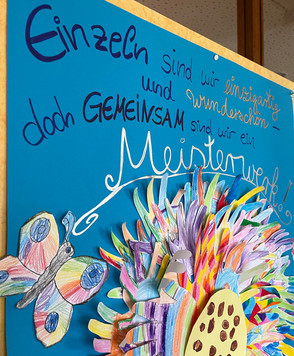 Einzeln sind wir einzigartig
und wunderschön -
doch GEMEINSAM sind wir ein
Meisterwerk!